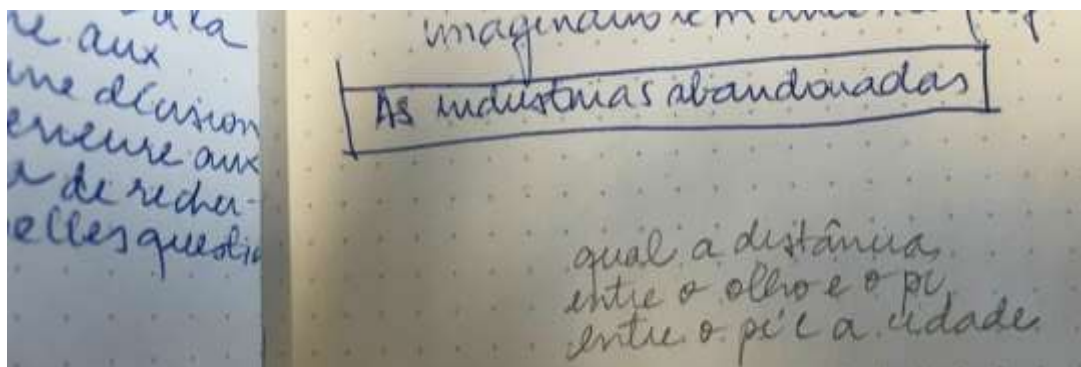 re aux
une décision
aux
de recher-
elles questio
imaginário
As indústrias abandonadas
qual a distância
entre o olho e o pé
entre o pé e a cidade